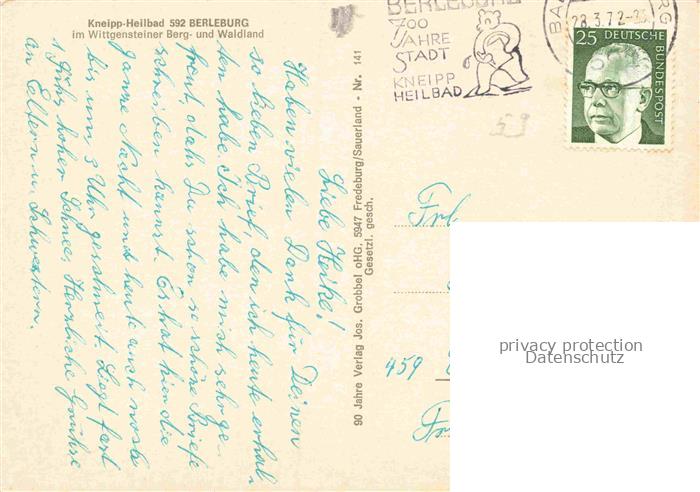 Kneipp-Heilbad 592 BERLEBURG
im Wittgensteiner Berg- und Waldland
BERLEBURG
700
JAHRE
STADT
KNEIPP
HEILBAD
28.3.72
25 DEUTSCHE
BUNDESPOST
59
Liebe Heike!
Haben vielen Dank für Deinen
so lieben Brief, den ich heute erhal-
ten habe. Ich habe mich sehr ge-
freut, daß Du schon so schöne Briefe
schreiben kannst. Es hat hier die
ganze Nacht und heute auch noch
bis um 3 Uhr geschneit. Liegt fast
1 Fuß hoher Schnee. Herzliche Grüße
an Eltern u. Schwestern.
90 Jahre Verlag Jos. Grobbel oHG, 5947 Fredeburg/Sauerland - Nr. 141
Gesetzl. gesch.
Frl.
459
privacy protection
Datenschutz